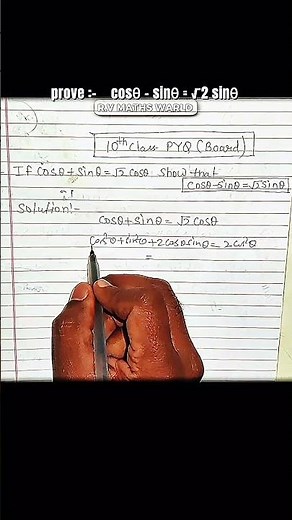 prove :- cosθ - sinθ = √2 sinθ
R.V MATHS WARLD
10th Class PYQ (Board)
If cosθ + sinθ = √2 cosθ show that
cosθ - sinθ = √2 sinθ
Solution:-
cosθ + sinθ = √2 cosθ
cos²θ + sin²θ + 2cosθ sinθ = 2cos²θ
=